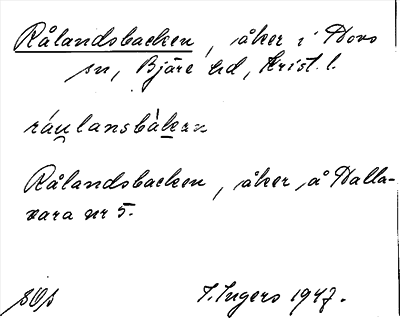 Rålandsbacken, åker i Hovs
sn, Bjäre hd, Krist. l.
ráu̯lansbàkan
Rålandsbacken, åker å Dalla-
vara nr 5.
I. Ingers 1947.